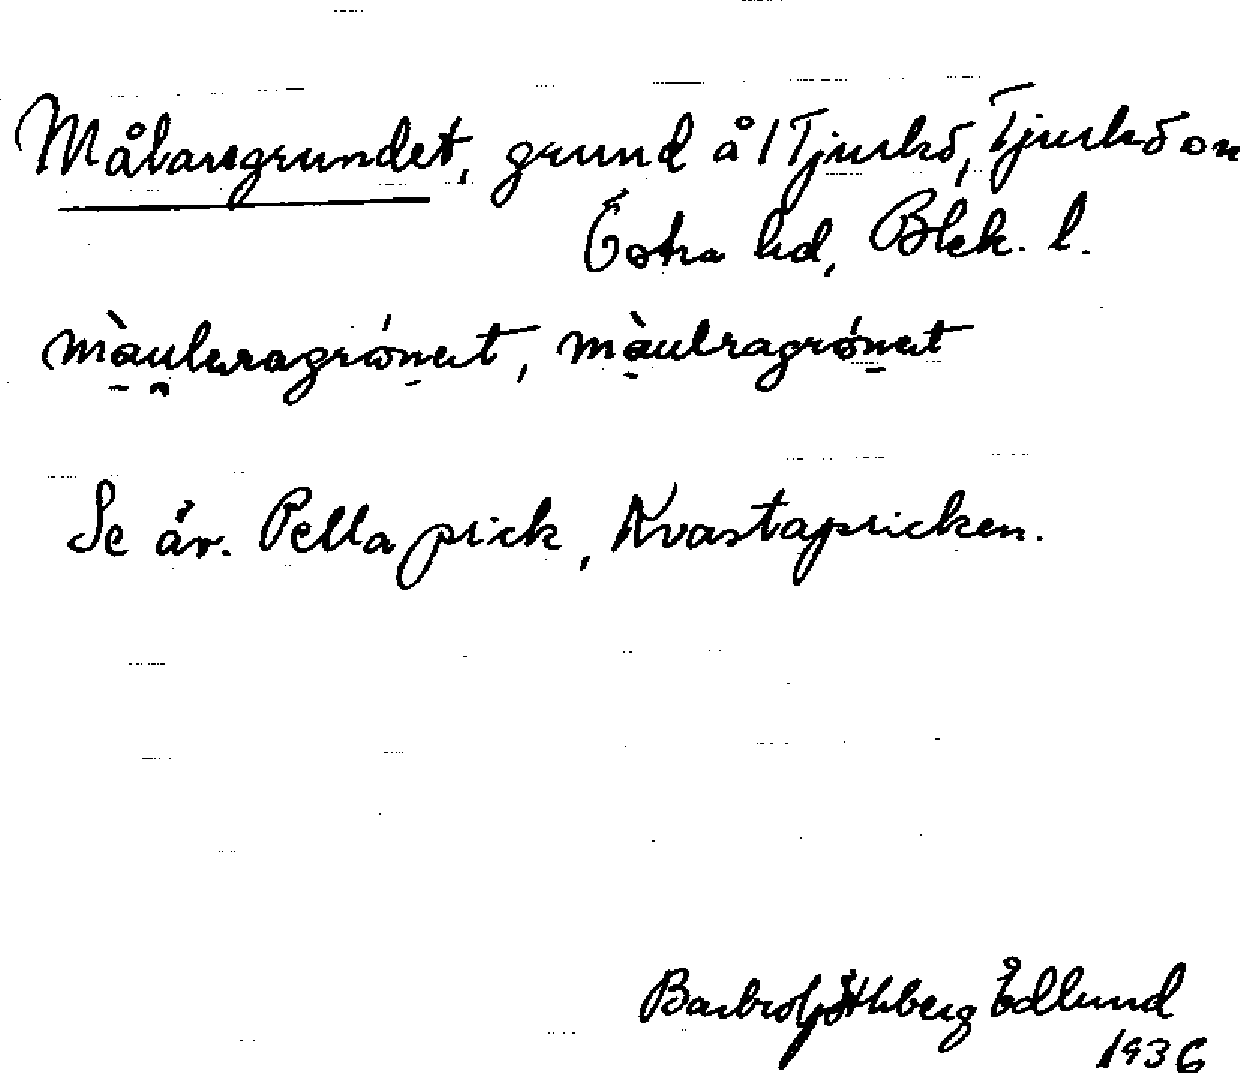 Målaregrundet, grund å 1 Tjurkö, Tjurkö sn
Östra hd, Blek. l.
màuleragrónet, màulragrónet
Se äv. Pella prick, Kvastapricken.
Barbro Edlund
1936